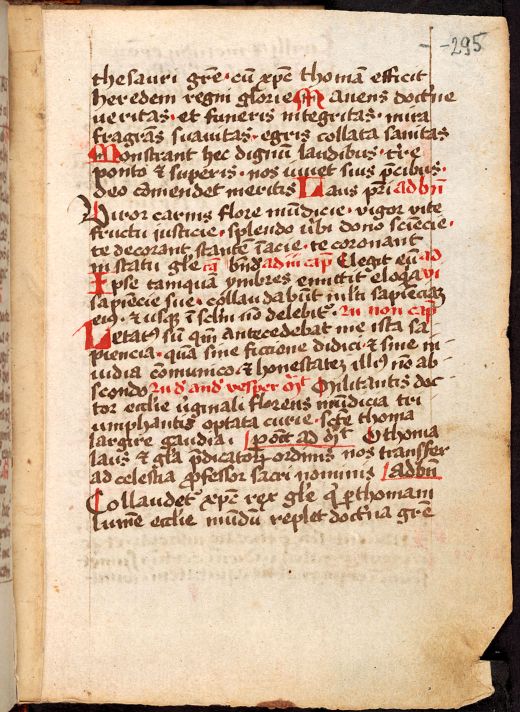 - -295
thesauri grē · cū xpē thomā efficit
heredem regni glorie Manens doctrīe
ueritas · et funeris integritas · mira
fragrās suauitas · egris collata sanitas
Monstrant hec dignū laudibus · tr̄e
ponto & superis · nos iuuet suis p̄cibus ·
deo cōmendet meritis Laus pr̄i ad bn̄
Viror carnis flore mūdicie · vigor vite
fructu justicie · splendor v̄bi dono sciēcie ·
te decorant stante ī acie · te coronant
in statu gl̄e · ad iii cap̄ Elegit eū ad
Ipse tamquā ymbres emittit eloq̄a vi
sapiēcie sue · collaudabūt m̄lti sapiēciā
ei9 · & usq3 ī sclm nō delebit Ad non cap̄
Letat9 sū q̄m antecedebat me ista sa
piencia · quā sine ficcione didici & sine in
uidia comunico · & honestatē illi9 nō ab
scondo vesper Militantis doc
tor ecclīe v̄ginali florens mūdicia tri
umphantis optata curie · scē thoma
largire gaudia · O thoma
laus & gl̄a p̄dicatoȝ ordinis nos transfer
ad celestia p̄fessor sacri nominis ad bn̄
Collaudet xp̄c rex gl̄e q̄ p̄ thomam
lumē ecclīe mūdū replet doctr̄na grē